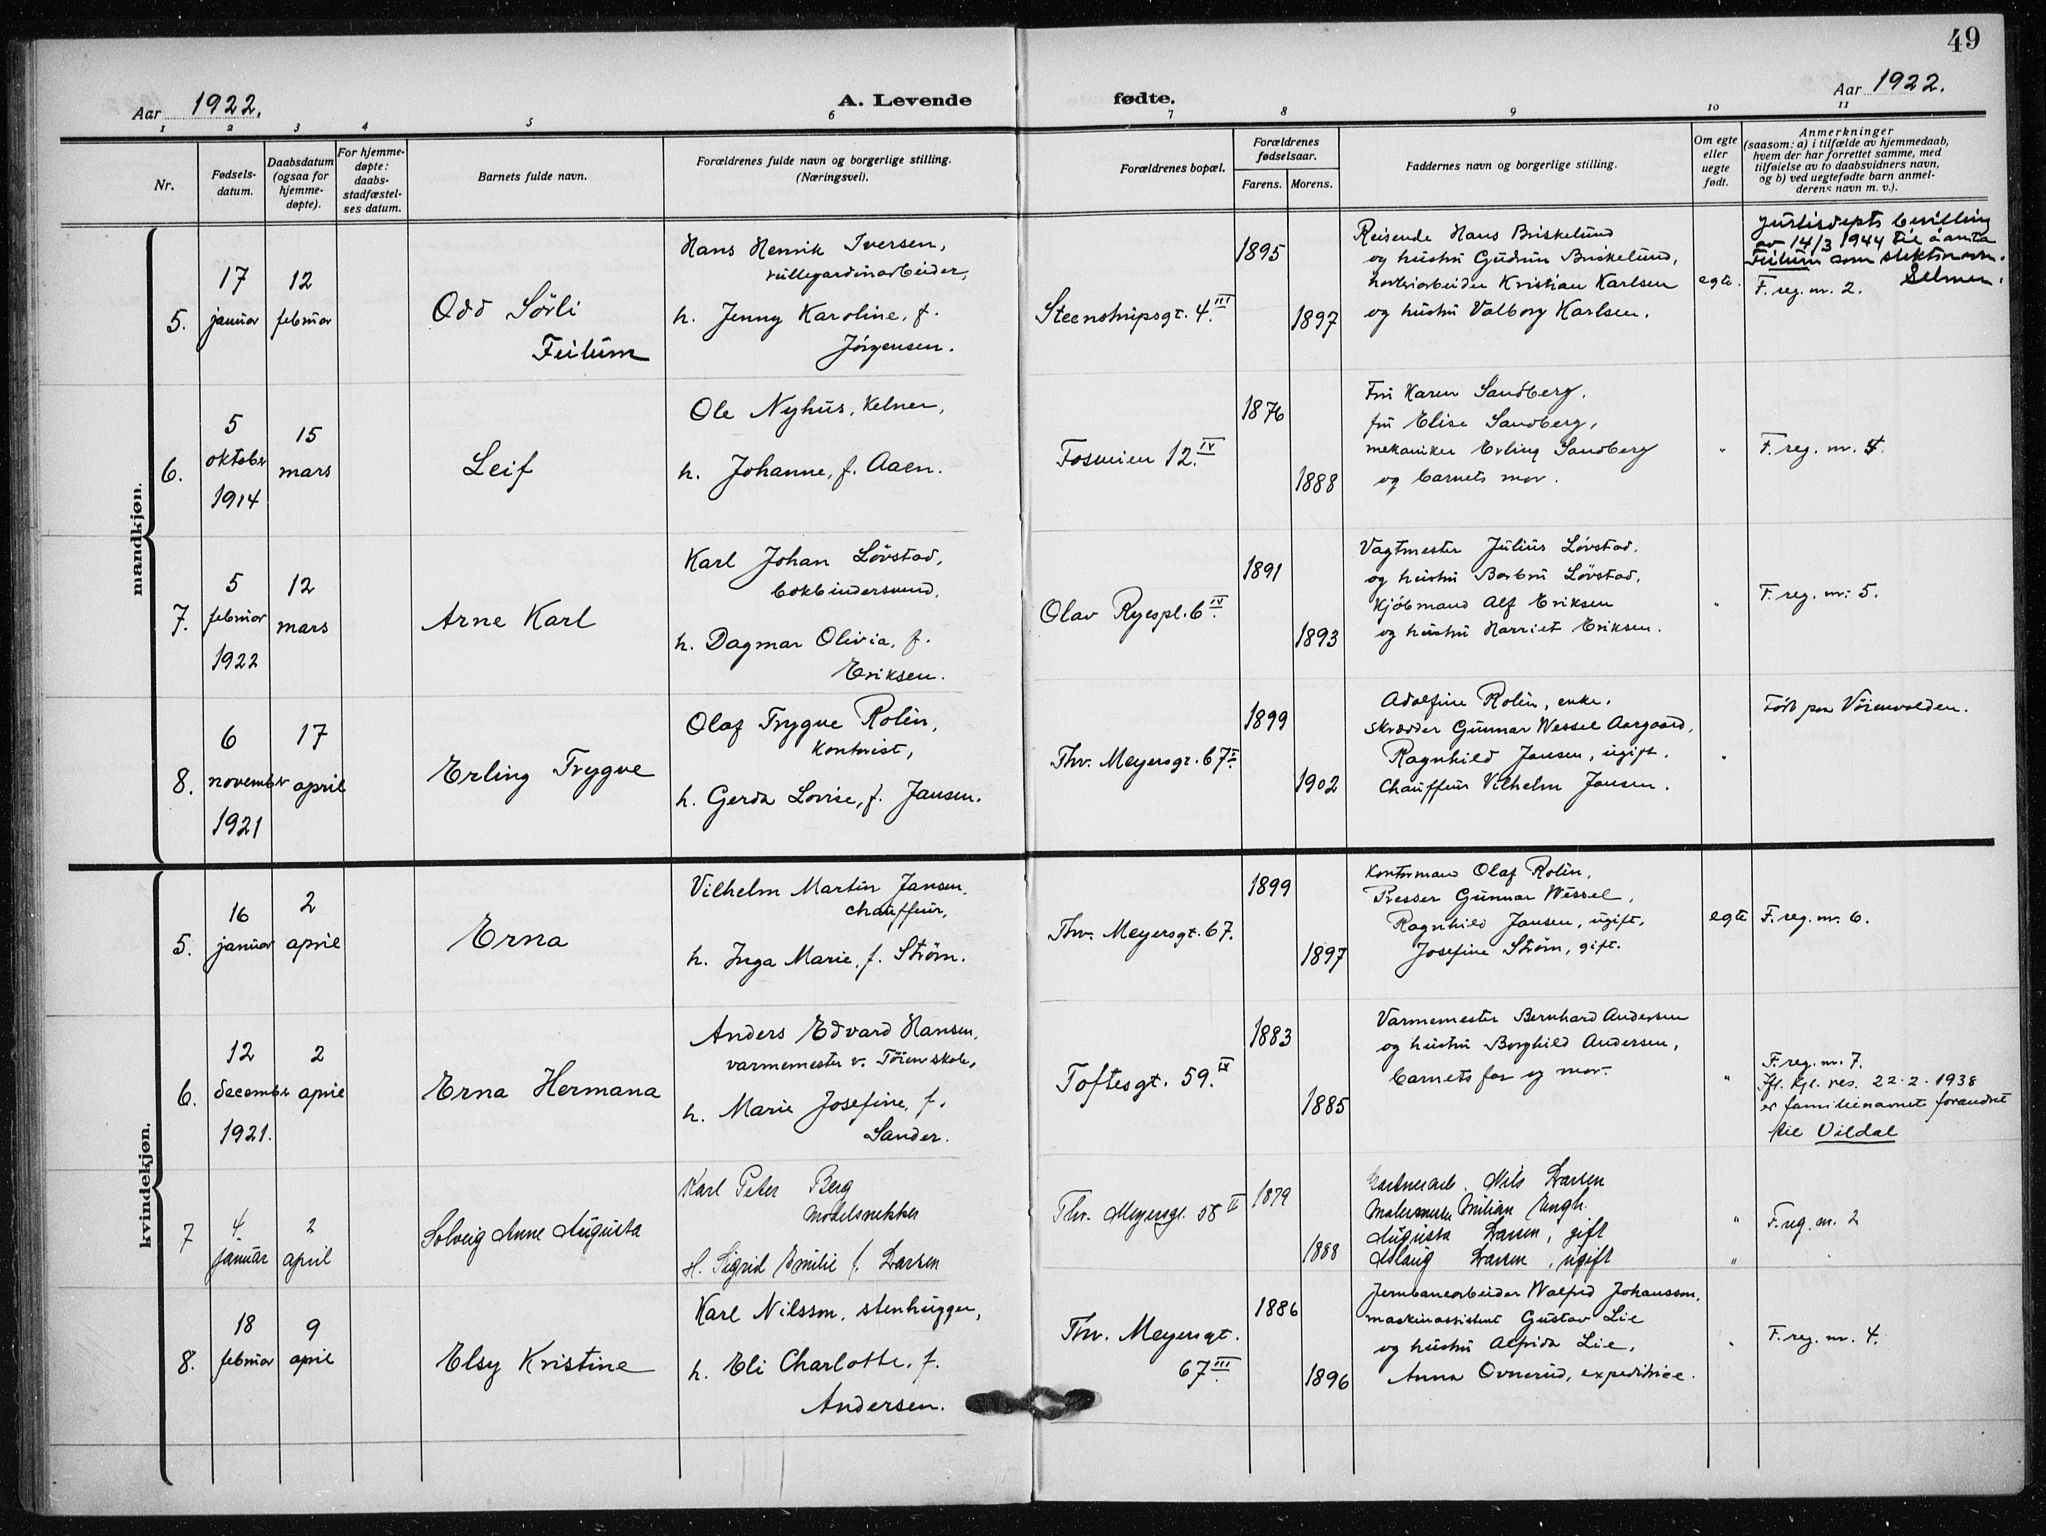 49
Aar 1922.
A. Levende
fødte.
Aar 1922.
1 2 3 4 5 6 7 8 9 10 11
Nr.
Fødsels-
datum.
Daabsdatum
(ogsaa for
hjemme-
døpte).
For hjemme-
døpte:
daabs-
stadfæstel-
ses datum.
Barnets fulde navn.
Forældrenes fulde navn og borgerlige stilling.
(Næringsvei).
Forældrenes bopæl.
Forældrenes
fødselsaar.
Farens. Morens.
Faddernes navn og borgerlige stilling.
Om egte
eller
uegte
født.
Anmerkninger
(saasom: a) i tilfælde av hjemmedaab,
hvem der har forrettet samme, med
tilføielse av to daabsvidners navn,
og b) ved uegtefødte barn anmel-
derens navn m. v.).
mandkjøn.
5.
17
januar
12
februar
Odd Sørli
Feilum
Hans Henrik Iversen,
rullegardinarbeider,
h. Jenny Karoline, f.
Jørgensen.
Steenstrupsgt. 4.III
1895
1897
Reisende Hans Briskelund
og hustru Gudrun Briskelund,
Kristian Karlsen
og hustru Valborg Karlsen.
egte.
Justisdepts bevilling
av 14/3 1944 til å anta
Feilum som slektsnavn.
Selmer.
F. reg. nr. 2.
6.
5
oktober
1914
15
mars
Leif
Ole Nyhus, Kelner,
h. Johanne, f. Aaen.
Fosveien 12.IV
1876
1888
Fru Karen Sandberg,
fru Elise Sandberg,
mekaniker Erling Sandberg
og barnets mor.
"
F. reg. nr.
7.
5
februar
1922
12
mars
Arne Karl
Karl Johan Løvstad,
bokbindersvend,
h. Dagmar Olivia, f.
Eriksen.
Olav Ryespl. 6 IV.
1891
1893
Vagtmester Julius Løvstad,
og hustru Borbru Løvstad,
Kjøbmand Alf Eriksen
og hustru Harriet Eriksen.
"
F. reg. nr. 5.
8.
6
november
1921
17
april
Erling Trygve
Olaf Trygve Rolin,
Kontorist,
h. Gerda Lovise, f. Jansen.
Thv. Meyersgt. 67 V
1899
1902
Adolfine Rolin, enke,
Skrædder Gunnar Wessel Aargaard,
Ragnhild Jansen, ugift.
Chauffeur Vilhelm Jansen.
"
Født paa Vøienvolden.
kvindekjøn.
5.
16
januar
2
april
Erna
Vilhelm Martin Jansen,
chauffeur,
h. Inga Marie, f. Strøm.
Thv. Meyersgt. 67.
1899
1897
Kontormand Olaf Rolin,
Presser Gunnar Wessel,
Ragnhild Jansen, ugift,
Josefine Strøm, gift.
egte
F. reg. nr. 6.
6.
12
december
1921.
2
april
Erna Hermana
Anders Edvard Hansen,
varmemester v. Tøien skole,
h. Marie Josefine, f.
Sander.
Toftesgt. 59.IV
1883
1885
Varmemester Bernhard Andersen
og hustru Borghild Andersen,
barnets far og mor.
"
F. reg. nr. 7.
Ifl. kgl. res. 22-2-1938
er familienavnet forandret
til Vildal
7
4
januar
2
april
Solveig Anne Augusta
Karl Peter Berg
modelsnekker
H. Sigrid Emilie f. Larsen
Thv. Meyersgt. 58 II
1879
1888
Gartnerarb. Nils Larsen
Malermester Milian Engh.
Augusta Larsen, gift
Aslaug Larsen, ugift
"
"
F. reg. nr. 2
8.
18
februar
9
april
Elsy Kristine
Karl Nilsson, stenhugger,
h. Eli Charlotte, f.
Andersen.
Thv. Meyersgt.
67 III.
1886
1896
Jernbanearbeider Walfrid Johansson,
maskinassistent Gustav Lie
og hustru Alfrida Lie,
Anna Ovnerud, expeditrice.
"
F. reg. nr. 4.